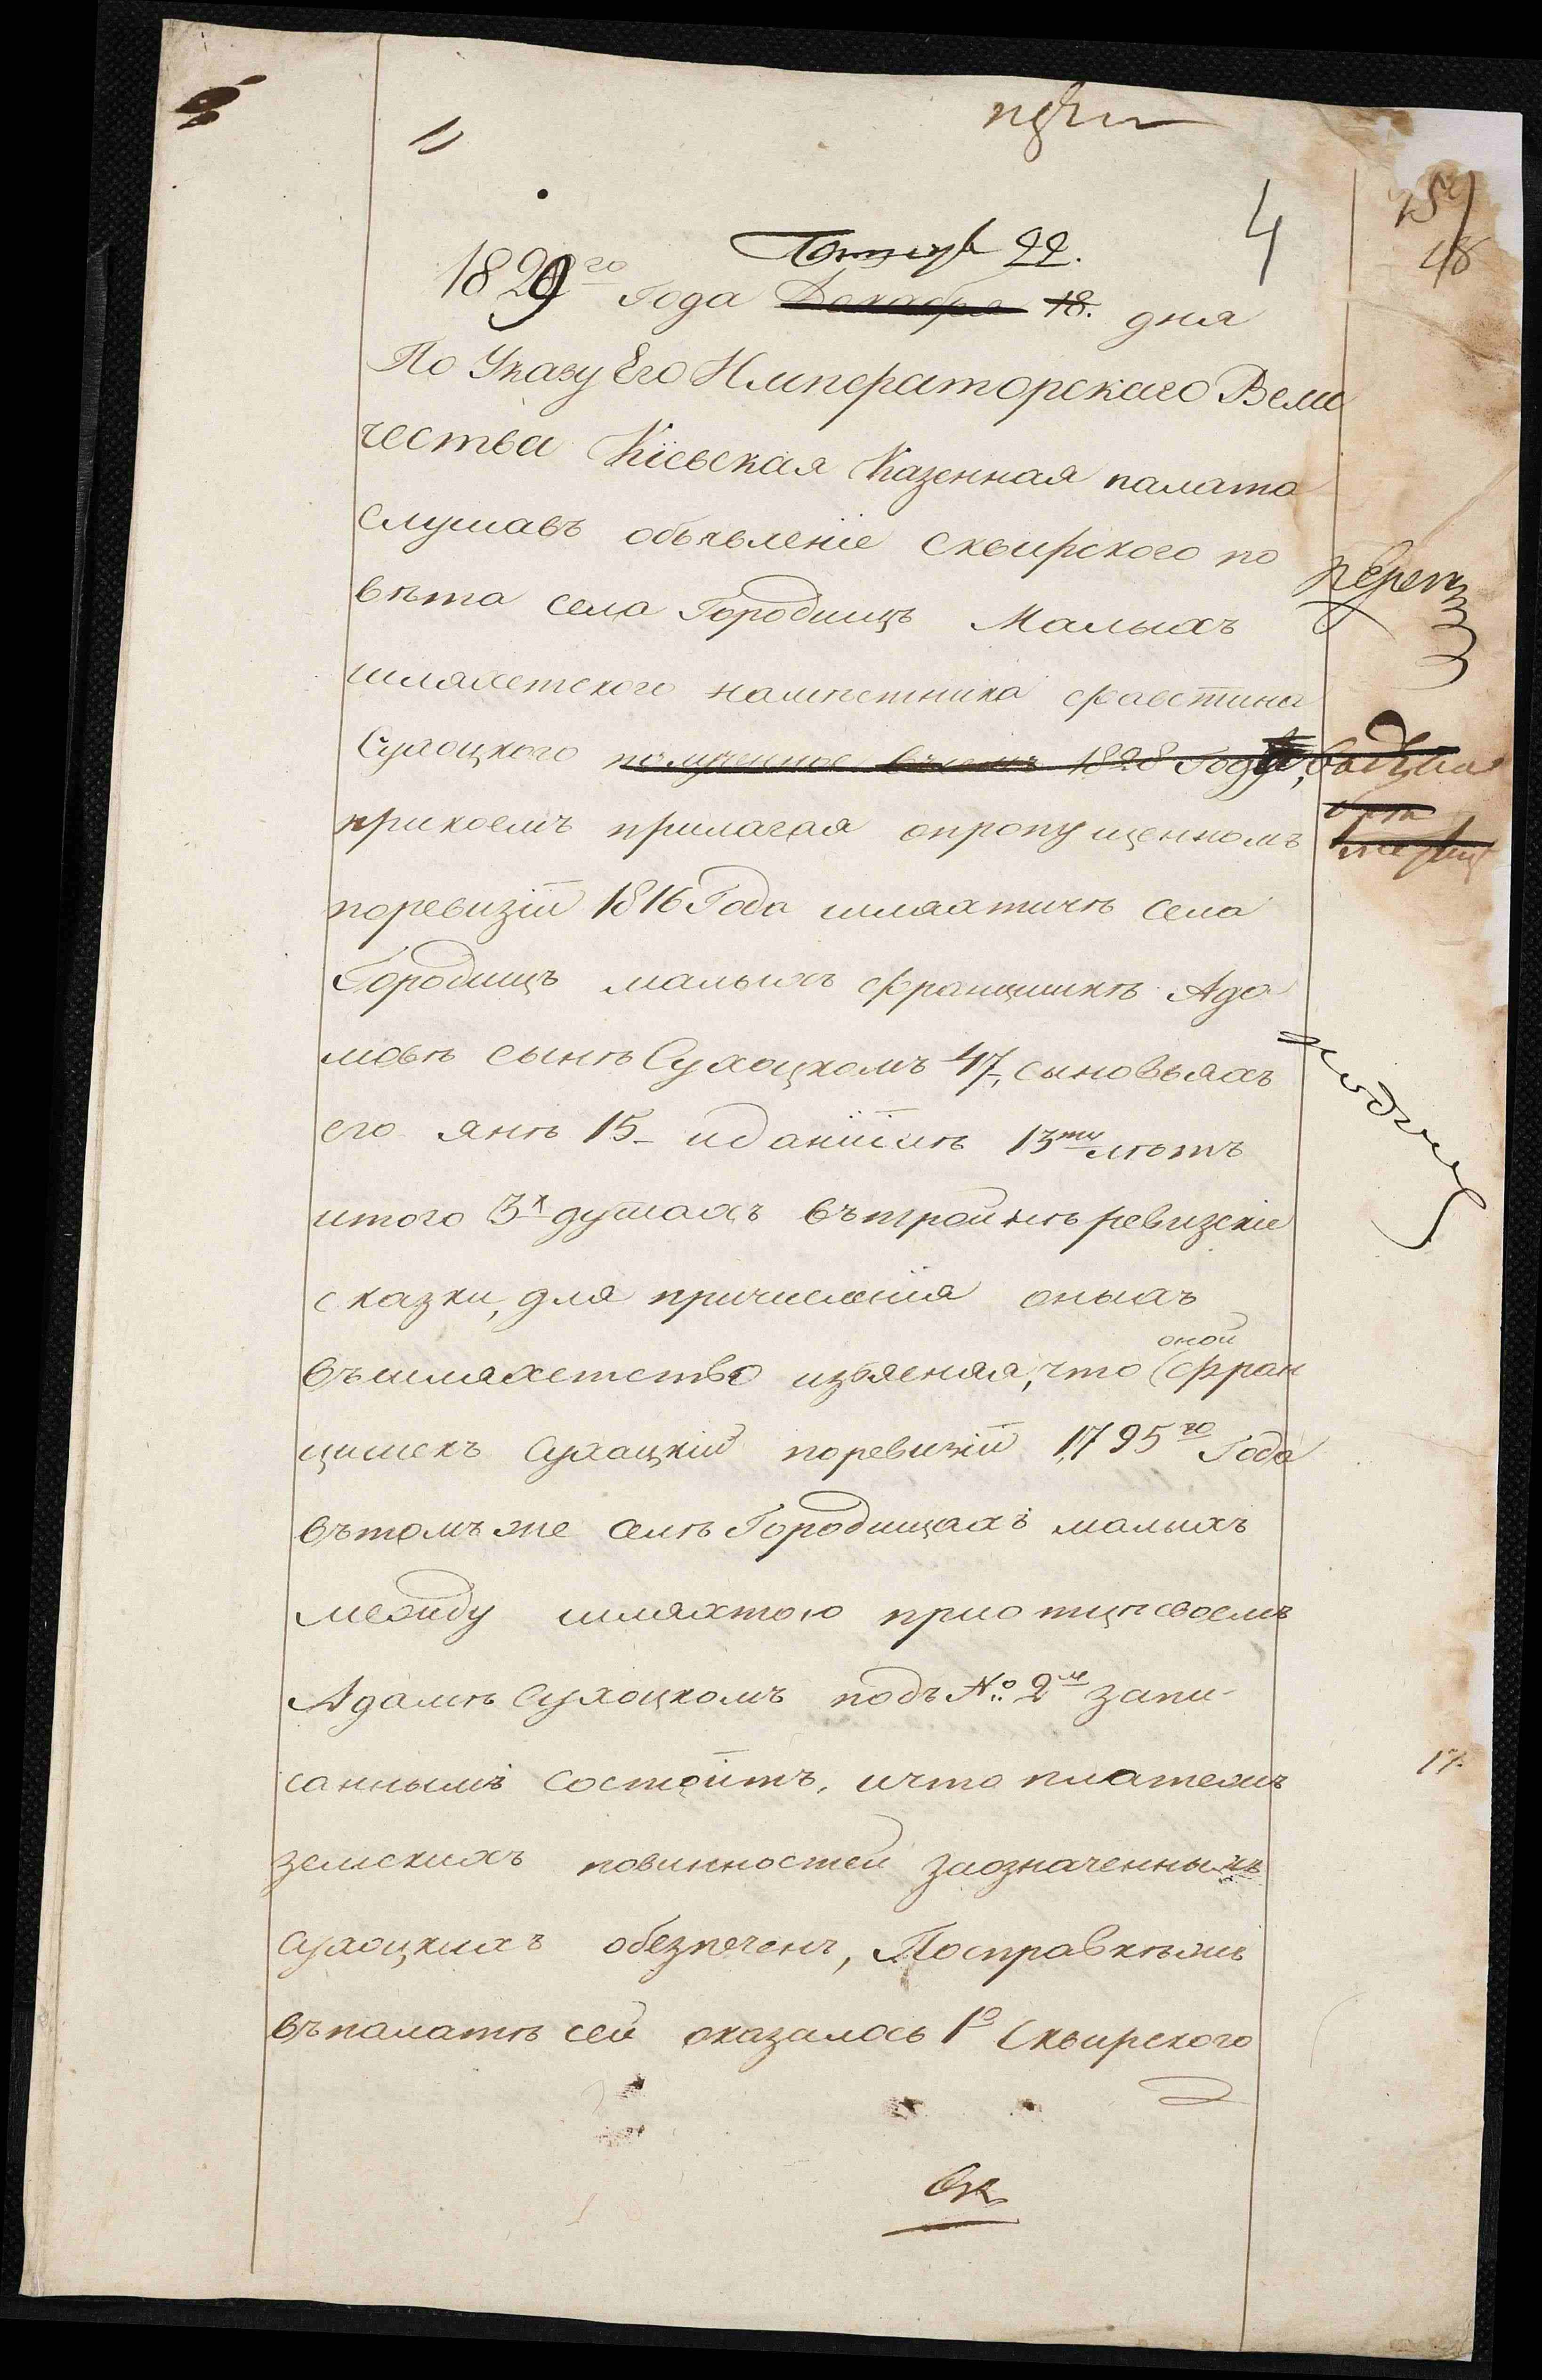 4
22.
1829го Года Декабря 18. дня
По Указу Его Императорскаго Вели
чества Кіевская Казенная палата
слушавъ объявленіе Сквирского по
вѣта села Городищъ Малыхъ
шляхетского намѣстника Фавстина
Сухоцкого полученное 1828 Году,
при коемъ прилагая опропущенномъ
поревизіи 1816 Года шляхтичѣ села
Городищъ малыхъ Францишкѣ Ада
мовѣ сынѣ Сухоцкомъ 47, сыновьяхъ
его янѣ 15 иданіилѣ 13ти лѣтъ
итого 3х душахъ въ тройнѣ ревизскіе
сказки, для причисленія оныхъ
оной
въ шляхетство изъясняя, что Фран
цишекъ Сухоцкій поревизіи 1795го Года
въ томъ же селѣ Городищахъ малыхъ
между шляхтою при отцѣ своемъ
Адамѣ Сухоцкомъ подъ № 2м запи-
саннымъ состоитъ, и что платежъ
земскихъ повинностей заозначенныхъ
Сухоцкихъ обезпеченъ, Посправкѣ жъ
въ палатѣ сей оказалось 1е Сквирского
17.